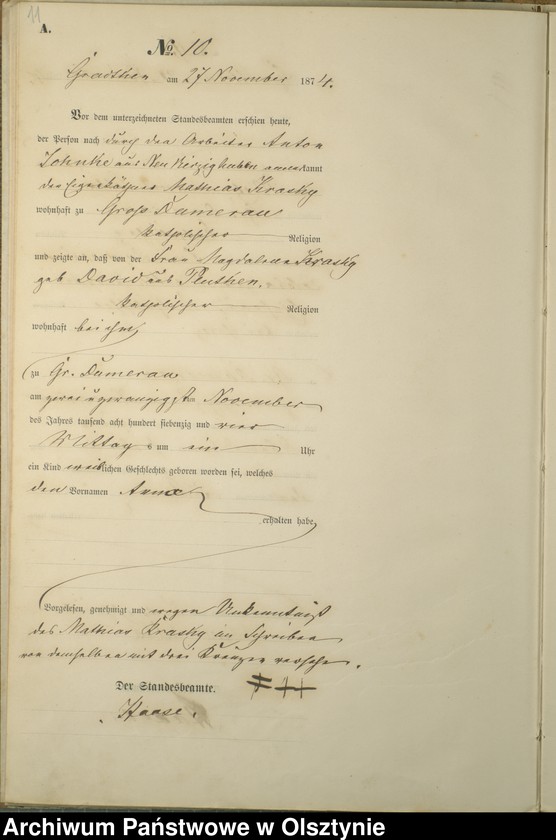 11
A.
No. 10.
am 27 November 1874.
Vor dem unterzeichneten Standesbeamten erschien heute,
der Person nach durch den Arbeiter Anton
aus Neu anerkannt
der Eigenkäthner Mathias Krasky
wohnhaft zu Groß Damerau
katholischer Religion
und zeigte an, daß von der Frau Magdalena Krasky
geb David aus
katholischer Religion
wohnhaft bei ihm
zu Gr. Damerau
am zwei u zwanzigsten November
des Jahres tausend acht hundert siebenzig und vier
Mittag s um ein Uhr
ein Kind weiblichen Geschlechts geboren worden sei, welches
den Vornamen Anna
erhalten habe
Vorgelesen, genehmigt und wegen Unkenntniß
des Mathias Krasky im Schreiben
von demselben mit drei Kreuzen versehen.
Der Standesbeamte. +++
Haase.
Archiwum Państwowe w Olsztynie